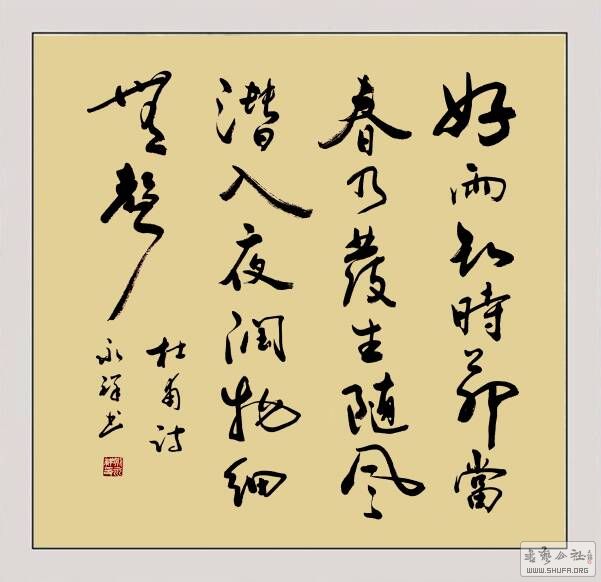 好雨知時節當
春乃發生隨風
潛入夜润物細
無聲
杜甫诗
永祥书
WWW.SHUFA.ORG